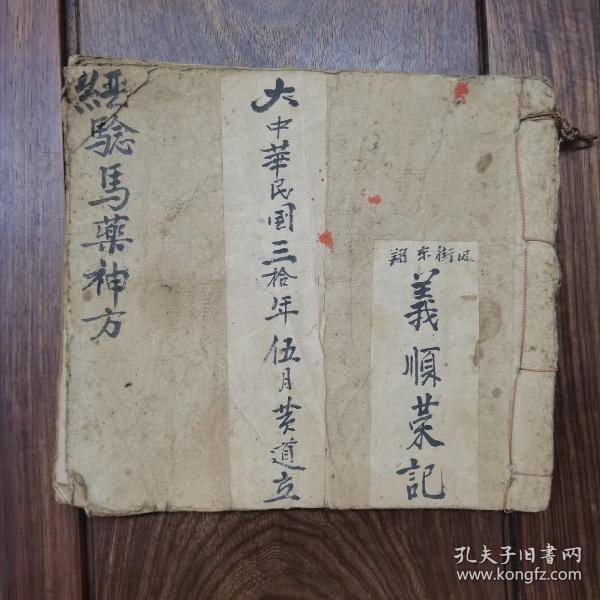 凤翔东街
義順荣記
大中華民国三拾年伍月黄道立
經驗馬藥神方
孔夫子旧书网
www.kongfz.com